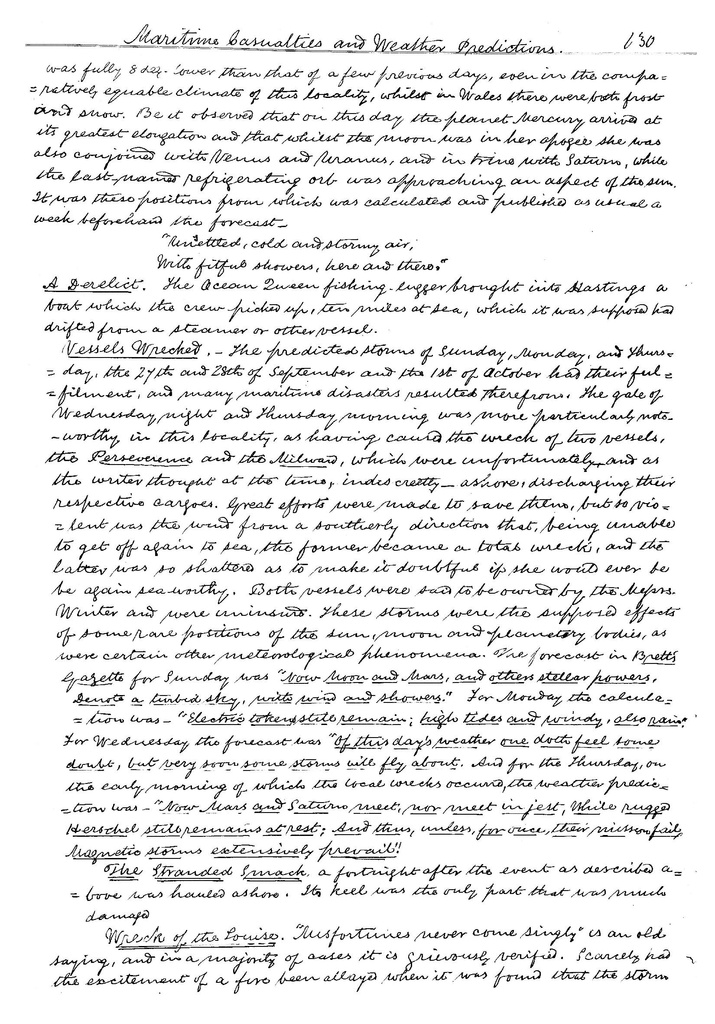 Maritime Casualties and Weather Predictions. 630
was fully 8 deg. lower than that of a few previous days, even in the compa=
=ratively equable climate of this locality, whilst in Wales there were both frost
and snow. Be it observed that on this day the planet Mercury arrived at
its greatest elongation and that whilst the moon was in her apogee she was
also conjoined with Venus and Uranus, and in trine with Saturn, while
the last-named refrigerating orb was approaching an aspect of the sun.
It was these positions from which was calculated and published as usual a
week beforehand the forecast—
"Unsettled, cold and stormy air,
With fitful showers, here and there."
A Derelict. The Ocean Queen fishing-lugger brought into Hastings a
boat which the crew picked up, ten miles at sea, which it was supposed had
drifted from a steamer or other vessel.
Vessels Wrecked. - The predicted storms of Sunday, Monday, and Thurs=
=day, the 27th and 28th of September and the 1st of October had their ful=
=filment, and many maritime disasters resulted therefrom. The gale of
Wednesday night and Thursday morning was more particularly note-
-worthy in this locality, as having caused the wreck of two vessels,
the Perseverence and the Milward, which were unfortunately and as
the writer thought at the time, indiscreetly - ashore, discharging their
respective cargoes. Great efforts were made to save them, but so vio=
=lent was the wind from a southerly direction that, being unable
to get off again to sea, the former became a total wreck, and the
latter was so shattered as to make it doubtful if she would ever be
be again seaworthy. Both vessels were said to be owned by the Messrs.
Winter and were uninsured. These storms were the supposed effects
of some rare positions of the sun, moon and planetary bodies, as
were certain other meteorological phenomena. The forecast in Brett's
Gazette for Sunday was "Now Moon and Mars, and others stellar powers,
Denote a turbid sky, with wind and showers." For Monday the calcula=
=tion was - "Electric tokens still remain; high tides and windy, also rain".
For Wednesday the forecast was "Of this day's weather one doth feel some
doubt, but very soon some storms will fly about. And for the Thursday, on
the early morning of which the local wrecks occured, the weather predic=
=tion was - "Now Mars and Saturn meet, nor meet in jest, While rugged
Herschel still remains at rest; And thus, unless, for once, their mission fail,
Magnetic storms extensively prevail"!
The Stranded Smack, a fortnight after the event as described a=
=bove was hauled ashore. Its keel was the only part that was much
damaged
Wreck of the Louise. "Misfortunes never come singly" is an old
saying, and in a majority of cases it is grievously verified. Scarcely had
the excitement of a fire been allayed when it was found that the storm